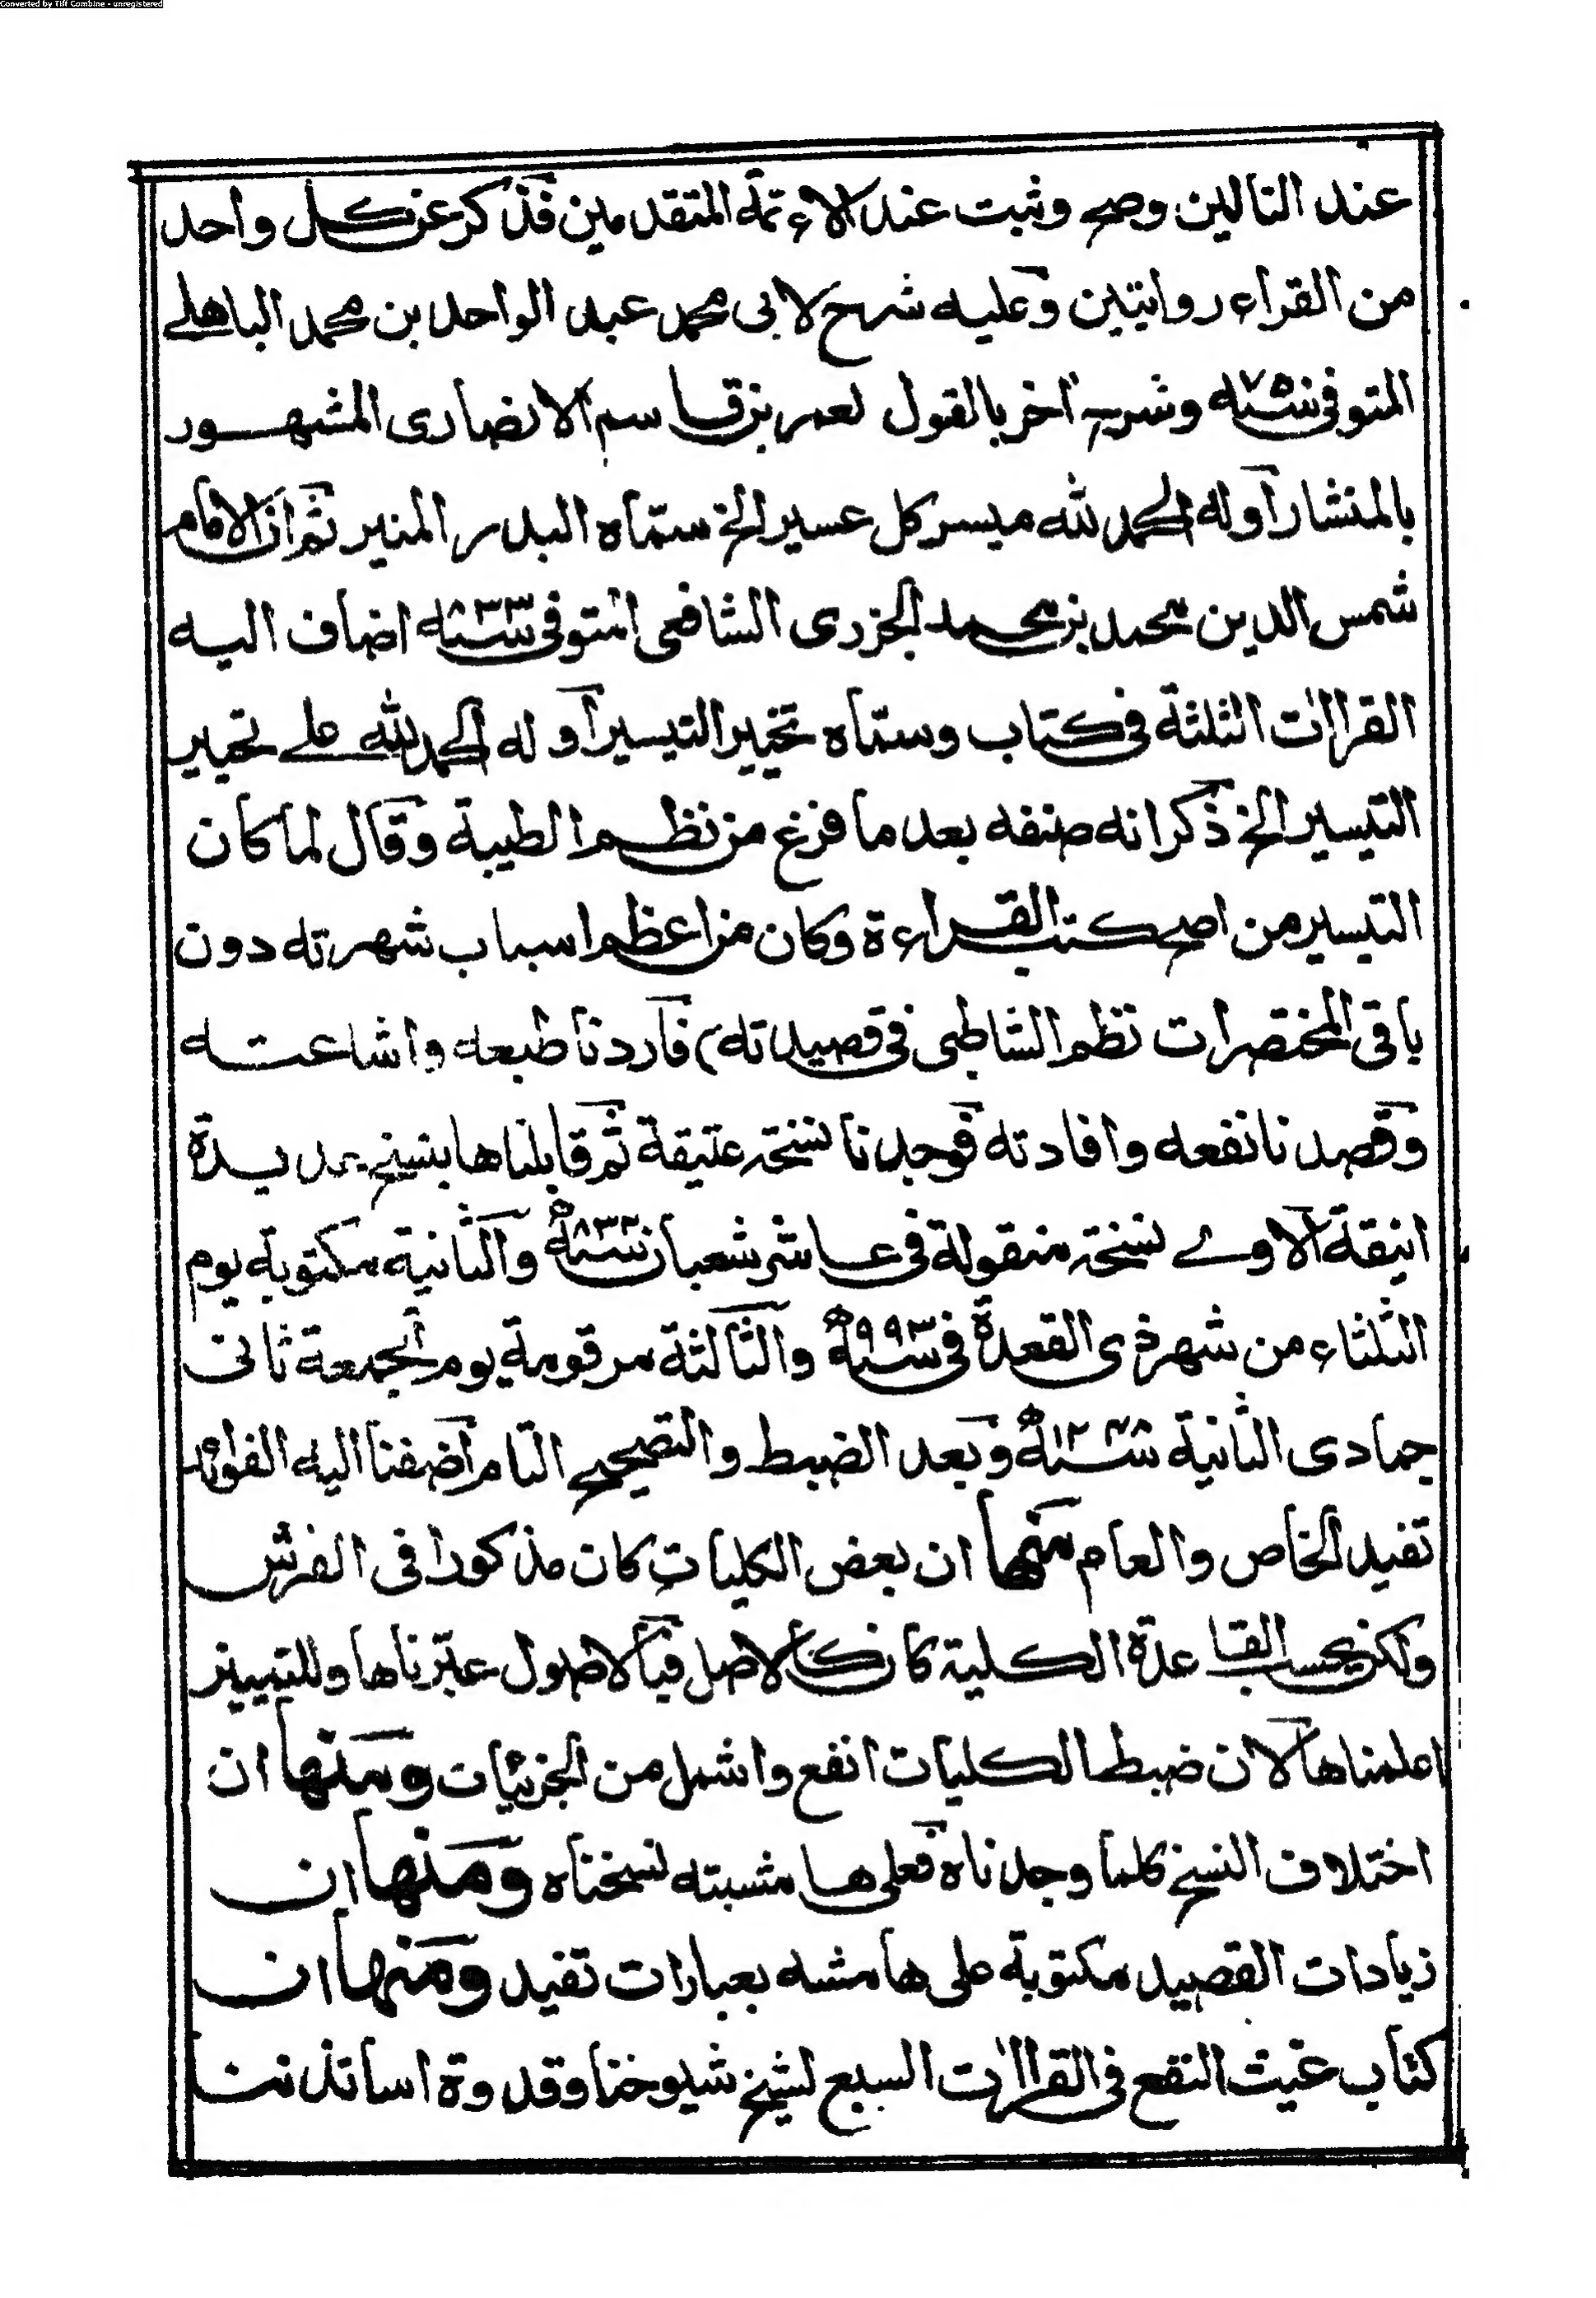 Converted by Tiff Combine - unregistered
عند التالين وصح وثبت عند الاءتمة المتقدمين فذكر عن كل واحد
من القراء روايتين وعليه شرح لابى محمد عبد الواحد بن محمد الباهلے
المتوفى سنة ٧٥٠ وشرح اخر بالقول لعمر بن قاسم الانصارى المشهور
بالمنشار اوله الحمد لله ميسر كل عسير الخ سماه البدر المنير ثم ان الامام
شمس الدين محمد بن محمد الجزرى الشافعى المتوفى سنة ٨٣٣ اضاف اليه
القراات الثلثة فى كتاب وسماه تحبير التيسير اوله الحمد لله على تحبير
التيسير الخ ذكر انه صنفه بعد ما فرغ من نظم الطيبة وقال لما كان
التيسير من اصح كتب القراءة وكان من اعظم اسباب شهرته دون
باقى المختصرات نظم الشاطبى فى قصيدته) فاردنا طبعه واشاعته
وقصدنا نفعه وافادته فوجدنا نسخة عتيقة ثم قابلناها بنسخ عديدة
انيقة الاولے نسخة منقولة فى عاشر شعبان سنة ٨٣٢ھ والثانية مكتوبة يوم
الثلثاء من شهر ذى القعدة فى سنة ٩٩٣ھ والثالثة مرقومة يوم الجمعة ثانى
جمادى الثانية سنة ھ وبعد الضبط والتصحيح التام اضفنا اليه الفوائد
تفيد الخاص والعام منها ان بعض الكليات كان مذكورا فى الفرش
ولكن بحسب القاعدة الكلية كان كالاصل فبالاصول عبرناها وللتمييز
اعلمناها لان ضبط الكليات انفع واشمل من الجزئيات ومنها ان
اختلاف النسخ كلما وجدناه فعلى هامشته نسخناه ومنها ان
زيادات القصيد مكتوبة على هامشه بعبارات تفيد ومنها ان
كتاب غيث النفع فى القراات السبع لشيخ شيوخنا وقدوة اساتذتنا